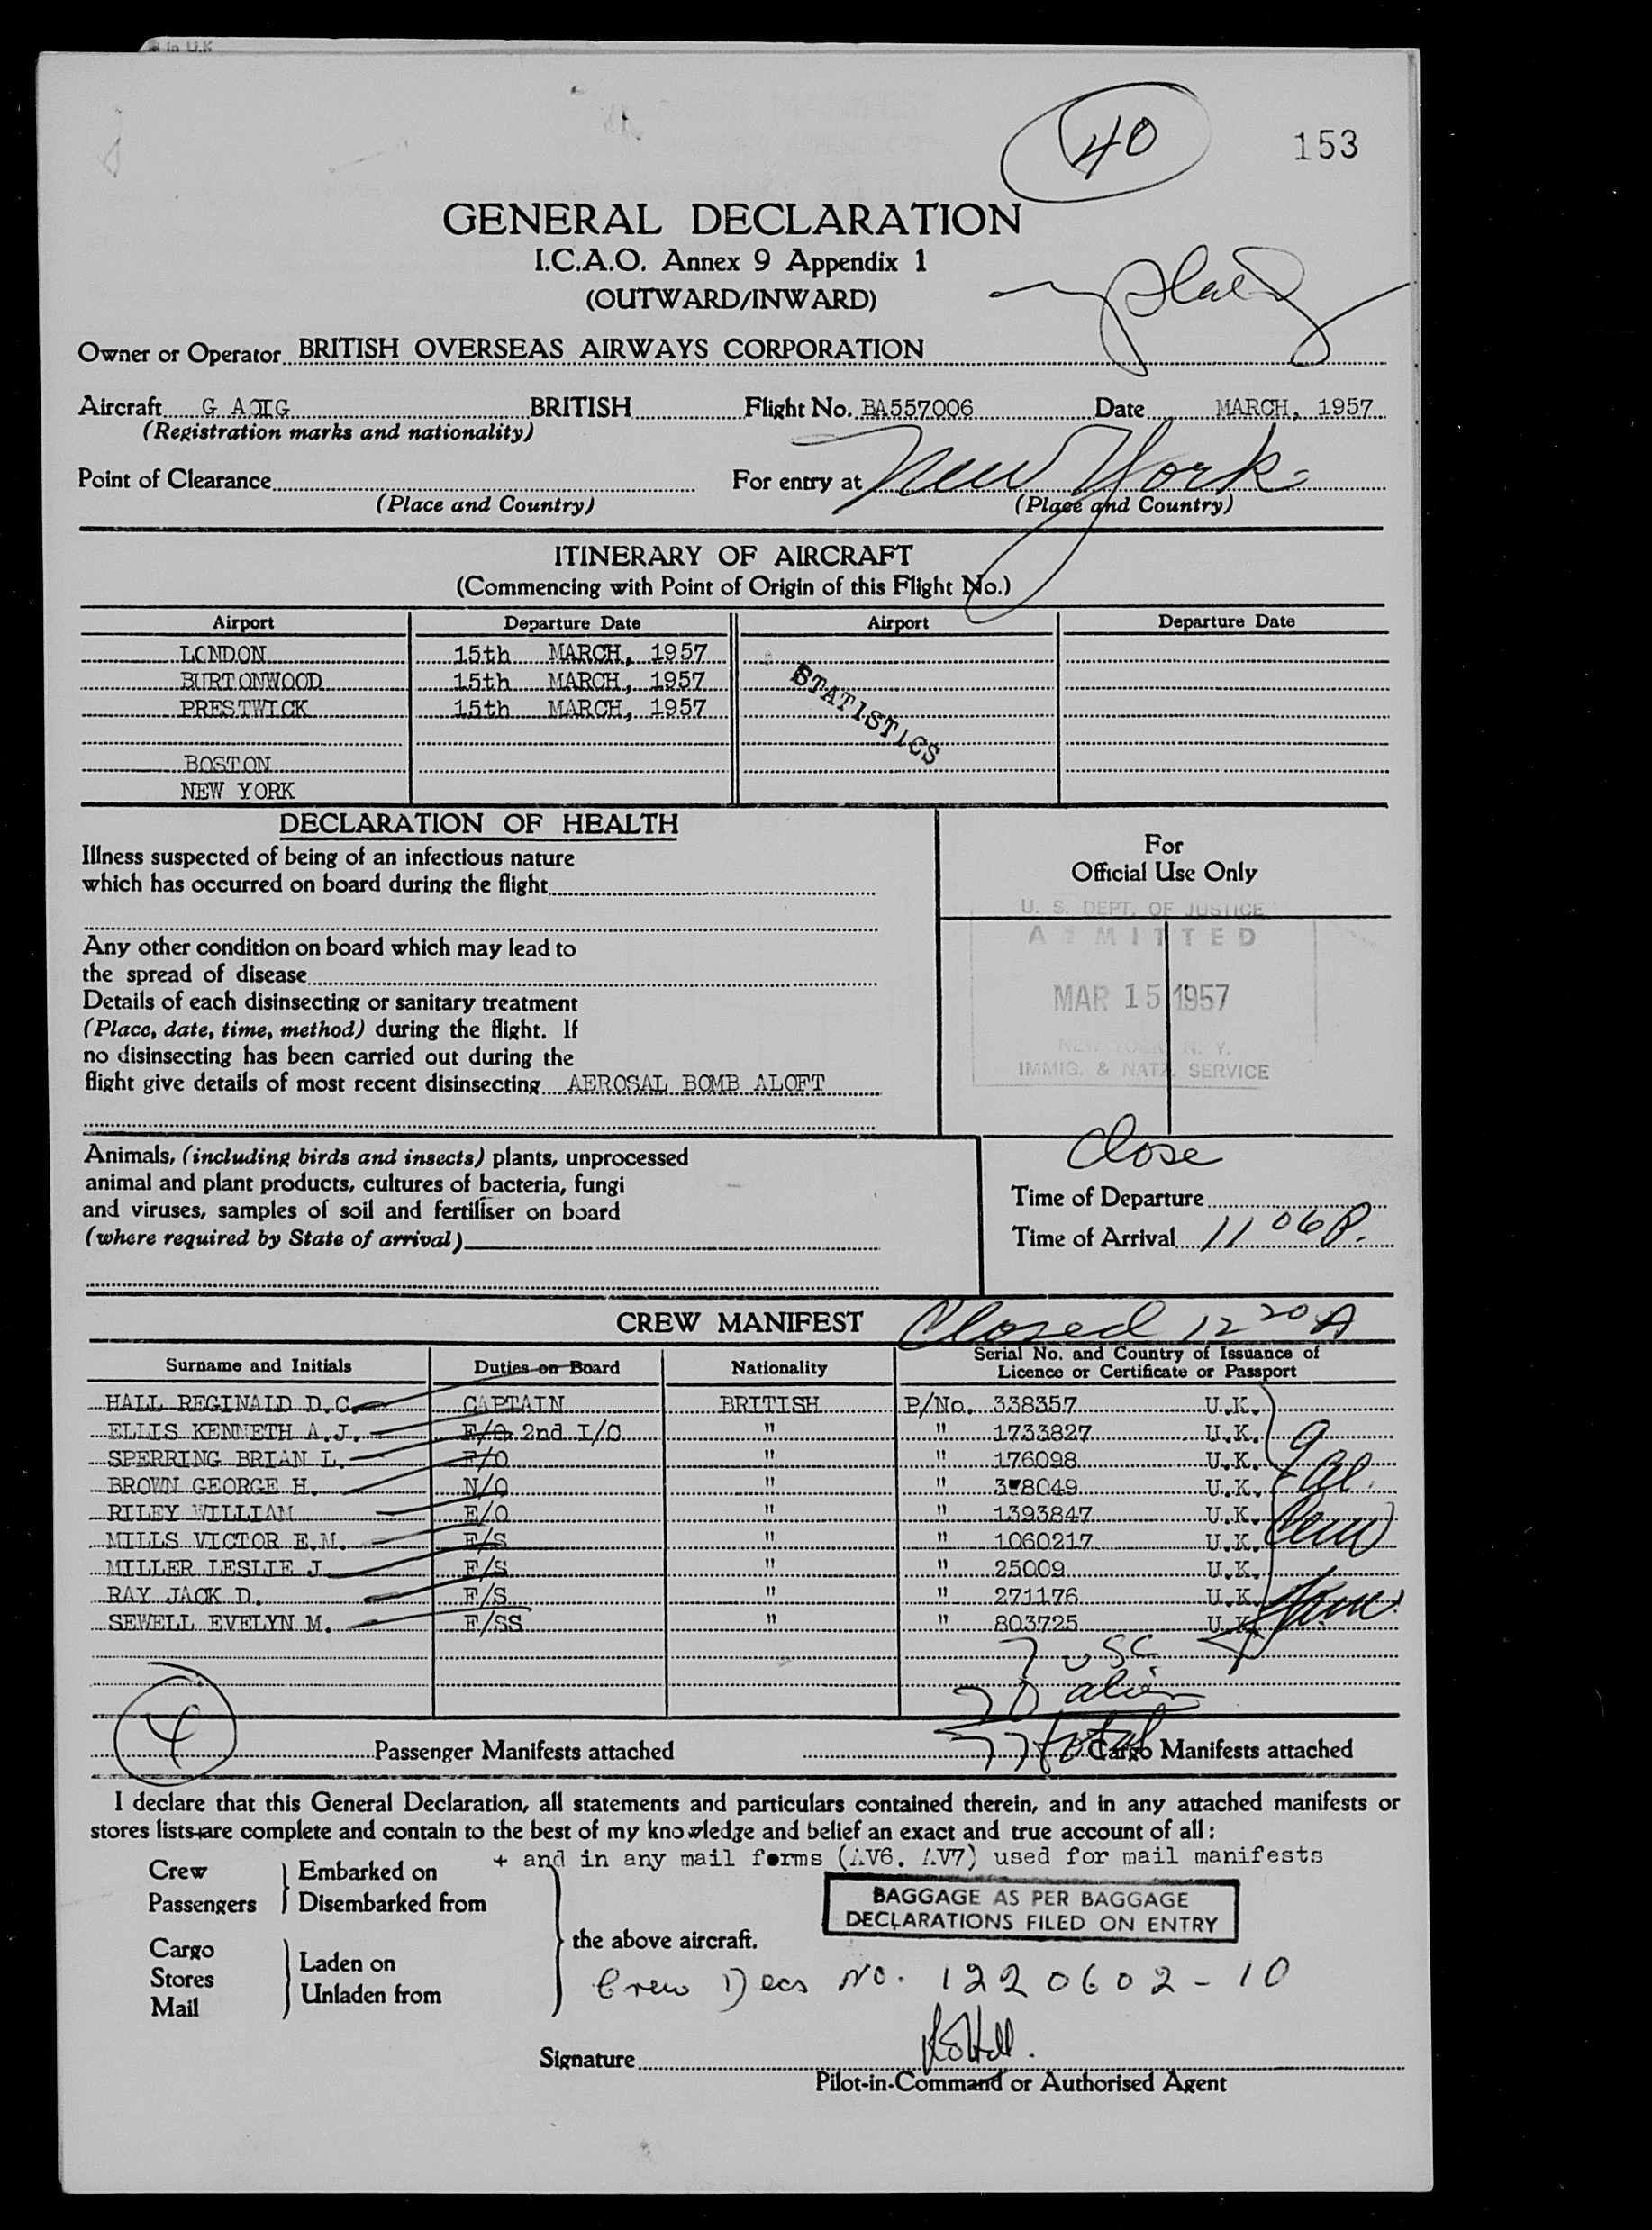 in U.K
40
153
GENERAL DECLARATION
I.C.A.O. Annex 9 Appendix 1
(OUTWARD/INWARD)
Owner or Operator BRITISH OVERSEAS AIRWAYS CORPORATION
Aircraft BRITISH Flight No. BA557006 Date MARCH, 1957
(Registration marks and nationality)
Point of Clearance For entry at New York
(Place and Country) (Place and Country)
ITINERARY OF AIRCRAFT
(Commencing with Point of Origin of this Flight No.)
Airport Departure Date Airport Departure Date
LONDON 15th MARCH, 1957
BURTONWOOD 15th MARCH, 1957
PRESTWICK 15th MARCH, 1957
STATISTICS
BOSTON
NEW YORK
DECLARATION OF HEALTH
Illness suspected of being of an infectious nature
which has occurred on board during the flight
For
Official Use Only
U. S. DEPT. OF JUSTICE
ADMITTED
MAR 15 1957
NEW YORK, N. Y.
IMMIG. & NATZ. SERVICE
Any other condition on board which may lead to
the spread of disease
Details of each disinsecting or sanitary treatment
(Place, date, time, method) during the flight. If
no disinsecting has been carried out during the
flight give details of most recent disinsecting AEROSAL BOMB ALOFT
Animals, (including birds and insects) plants, unprocessed
animal and plant products, cultures of bacteria, fungi
and viruses, samples of soil and fertiliser on board
(where required by State of arrival)
Close
Time of Departure
Time of Arrival 11 06 P.
CREW MANIFEST Closed 12 20 A
Surname and Initials Duties on Board Nationality Serial No. and Country of Issuance of
Licence or Certificate or Passport
HALL REGINALD D.C. CAPTAIN BRITISH P/No. 338357 U.K.
ELLIS KENNETH A.J. F/O 2nd I/C " " 1733827 U.K.
SPERRING BRIAN L. F/O " " 176098 U.K.
BROWN GEORGE H. N/O " " U.K.
RILEY WILLIAM E/O " " 1393847 U.K.
MILLS VICTOR E.M. F/S " " 1060217 U.K.
MILLER LESLIE J. F/S " " 25009 U.K.
RAY JACK D. F/S " " 271176 U.K.
SEWELL EVELYN M. F/SS " " 803725 U.K.
9
7 USC
alien
total
4
Passenger Manifests attached Cargo Manifests attached
I declare that this General Declaration, all statements and particulars contained therein, and in any attached manifests or
stores lists+are complete and contain to the best of my knowledge and belief an exact and true account of all:
+ and in any mail forms (AV6. AV7) used for mail manifests
Crew Embarked on
Passengers Disembarked from
BAGGAGE AS PER BAGGAGE
DECLARATIONS FILED ON ENTRY
the above aircraft.
Cargo
Stores Laden on
Mail Unladen from
Crew Decs No. 1220602-10
Signature
Pilot-in-Command or Authorised Agent